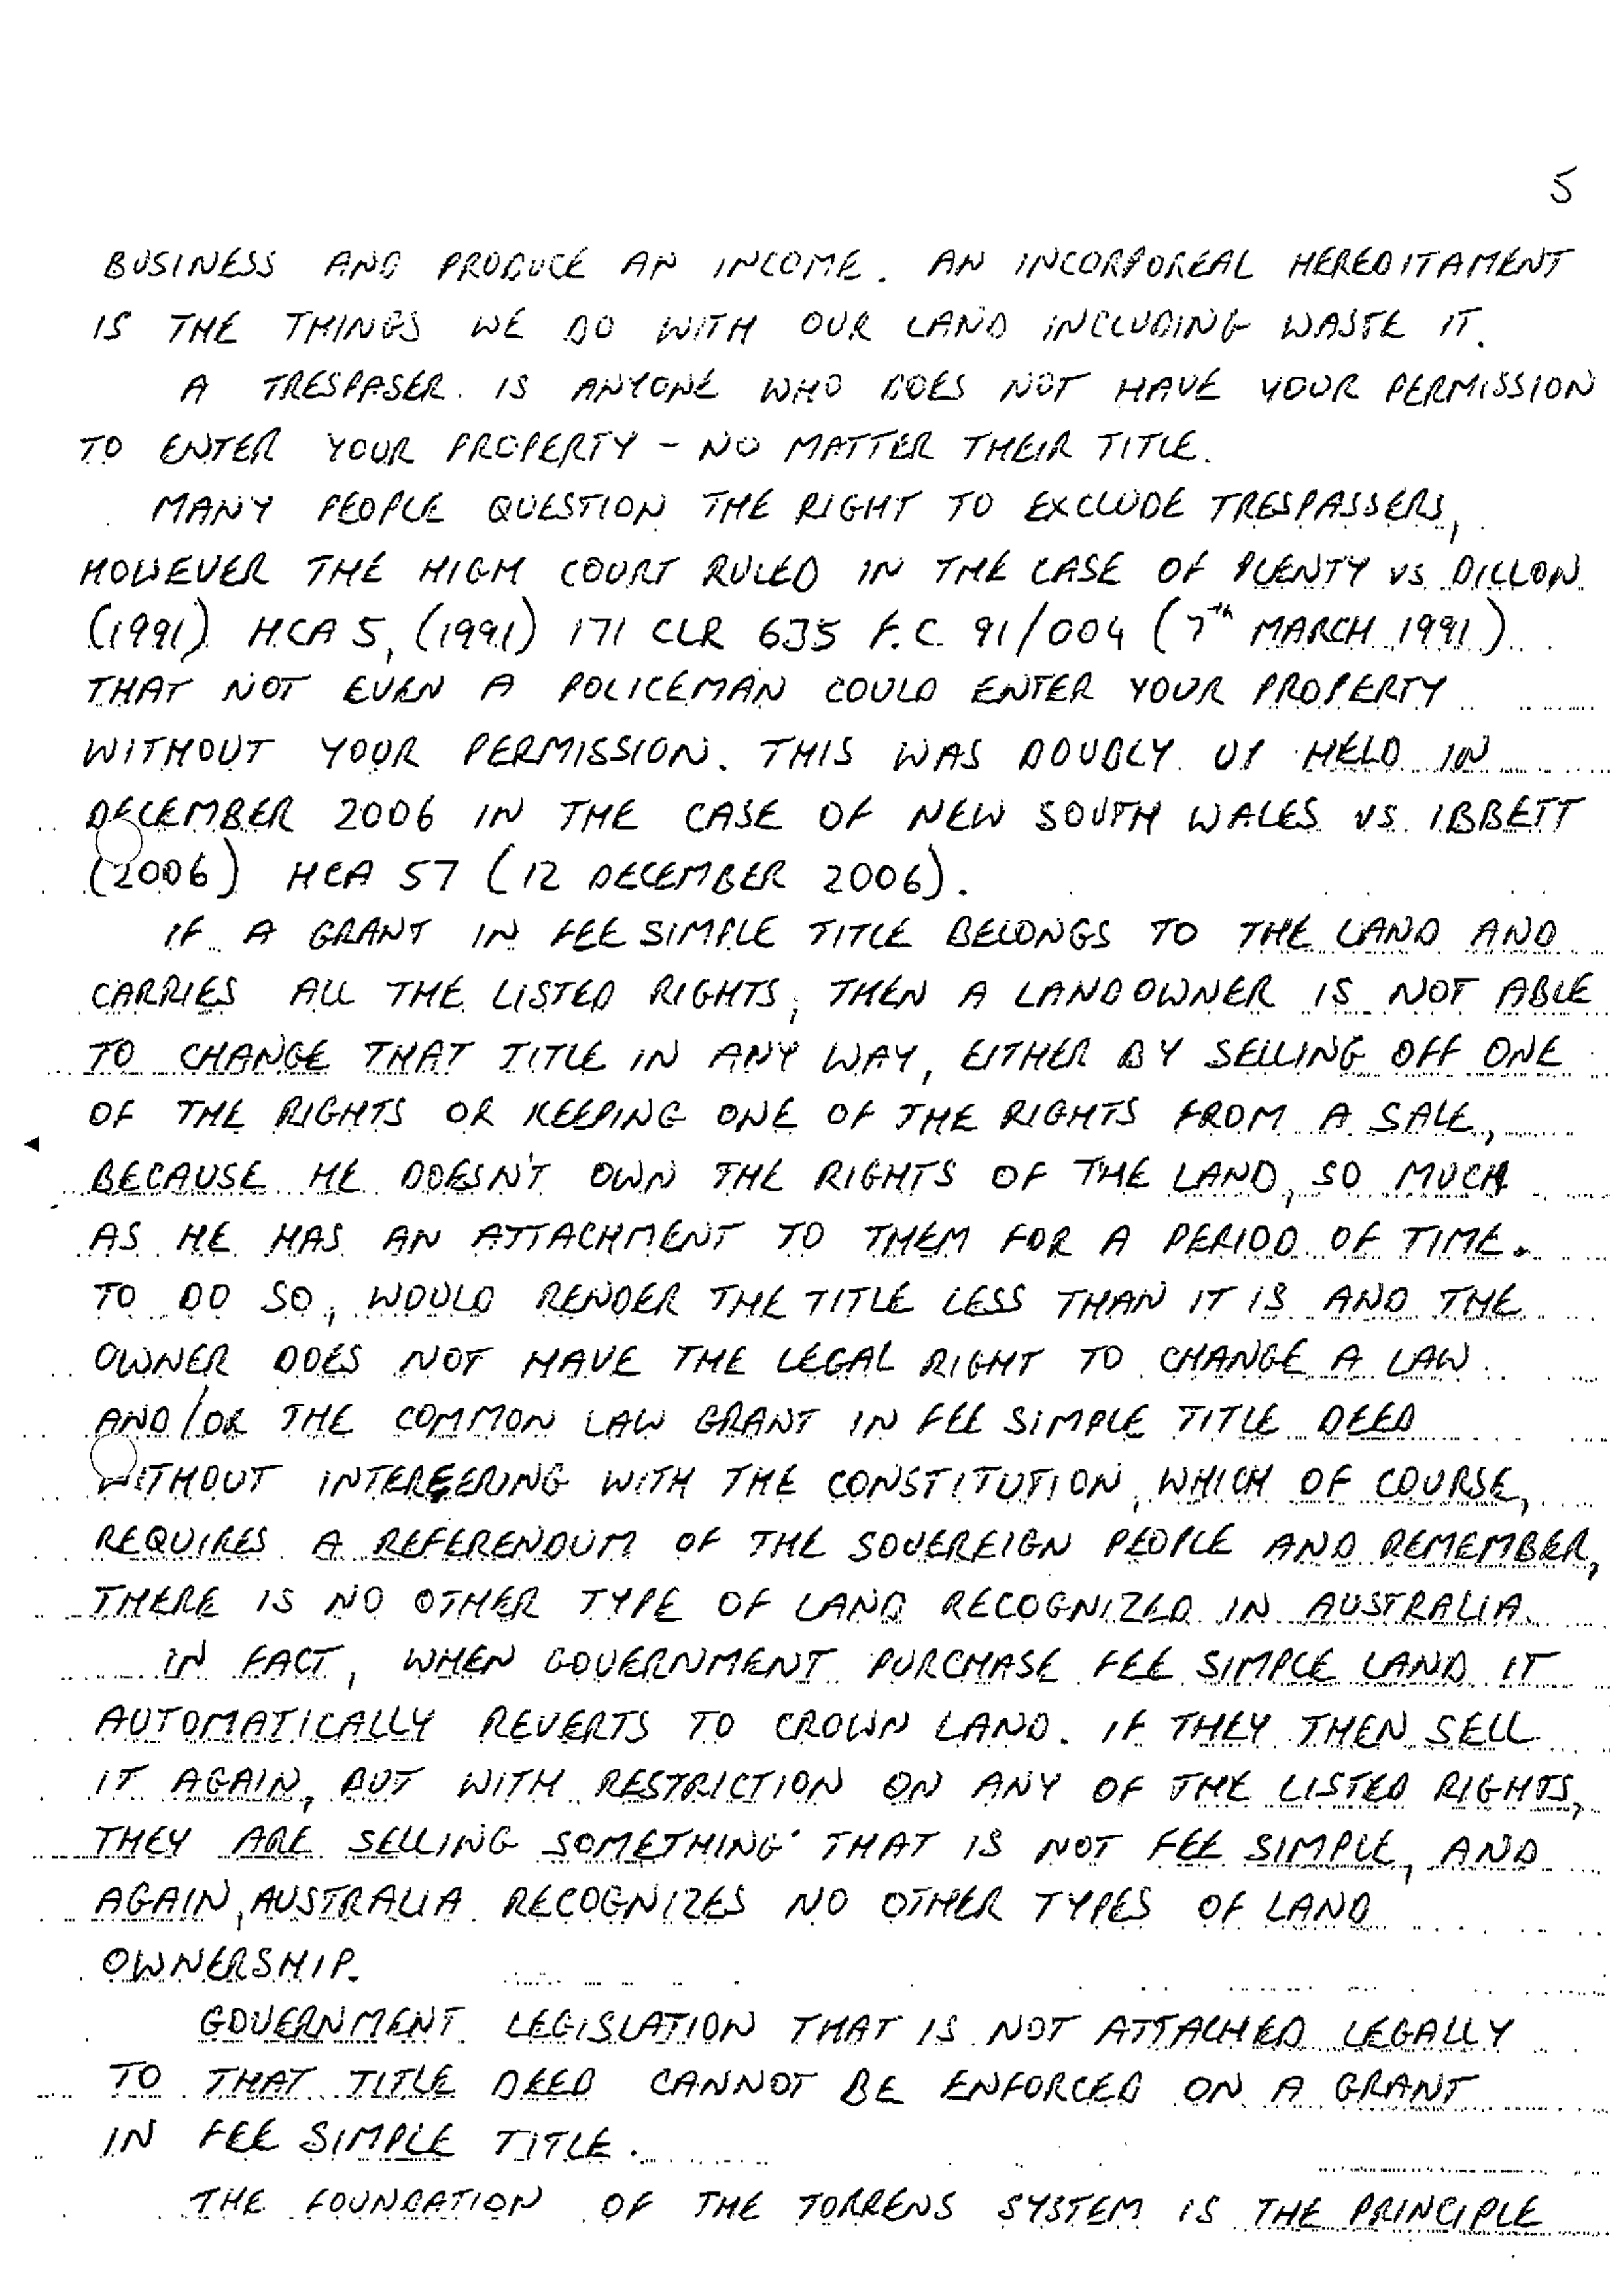 5
BUSINESS AND PRODUCE AN INCOME. AN INCORPOREAL HEREDITAMENT
IS THE THINGS WE DO WITH OUR LAND INCLUDING WASTE IT.
A TRESPASER IS ANYONE WHO DOES NOT HAVE YOUR PERMISSION
TO ENTER YOUR PROPERTY - NO MATTER THEIR TITLE.
MANY PEOPLE QUESTION THE RIGHT TO EXCLUDE TRESPASSERS,
HOWEVER THE HIGH COURT RULED IN THE CASE OF PLENTY VS DILLON
(1991) HCA 5, (1991) 171 CLR 635 F.C. 91/004 (7th MARCH 1991)
THAT NOT EVEN A POLICEMAN COULD ENTER YOUR PROPERTY
WITHOUT YOUR PERMISSION. THIS WAS DOUBLY UP HELD IN
DECEMBER 2006 IN THE CASE OF NEW SOUTH WALES VS. IBBETT
(2006) HCA 57 (12 DECEMBER 2006).
IF A GRANT IN FEE SIMPLE TITLE BELONGS TO THE LAND AND
CARRIES ALL THE LISTED RIGHTS, THEN A LANDOWNER IS NOT ABLE
TO CHANGE THAT TITLE IN ANY WAY, EITHER BY SELLING OFF ONE
OF THE RIGHTS OR KEEPING ONE OF THE RIGHTS FROM A SALE,
BECAUSE HE DOESN'T OWN THE RIGHTS OF THE LAND, SO MUCH
AS HE HAS AN ATTACHMENT TO THEM FOR A PERIOD OF TIME.
TO DO SO, WOULD RENDER THE TITLE LESS THAN IT IS AND THE
OWNER DOES NOT HAVE THE LEGAL RIGHT TO CHANGE A LAW
AND/OR THE COMMON LAW GRANT IN FEE SIMPLE TITLE DEED
WITHOUT INTERFEERING WITH THE CONSTITUTION, WHICH OF COURSE,
REQUIRES A REFERENDUM OF THE SOVEREIGN PEOPLE AND REMEMBER,
THERE IS NO OTHER TYPE OF LAND RECOGNIZED IN AUSTRALIA.
IN FACT, WHEN GOVERNMENT PURCHASE FEE SIMPLE LAND IT
AUTOMATICALLY REVERTS TO CROWN LAND. IF THEY THEN SELL
IT AGAIN, BUT WITH RESTRICTION ON ANY OF THE LISTED RIGHTS,
THEY ARE SELLING SOMETHING THAT IS NOT FEE SIMPLE, AND
AGAIN, AUSTRALIA RECOGNIZES NO OTHER TYPES OF LAND
OWNERSHIP.
GOVERNMENT LEGISLATION THAT IS NOT ATTACHED LEGALLY
TO THAT TITLE DEED CANNOT BE ENFORCED ON A GRANT
IN FEE SIMPLE TITLE.
THE FOUNDATION OF THE TORRENS SYSTEM IS THE PRINCIPLE